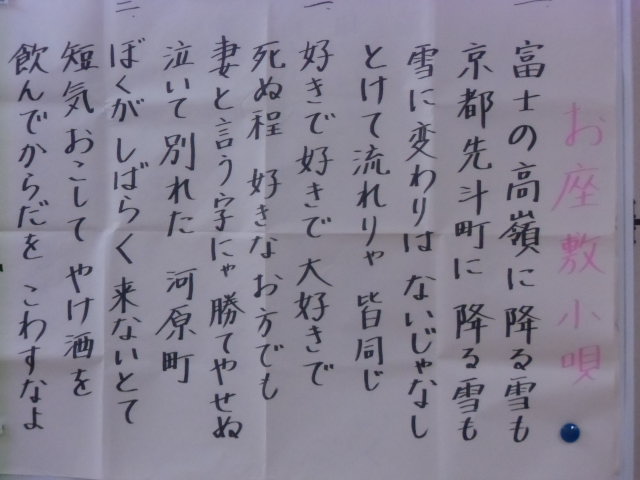 お座敷小唄
一
富士の高嶺に降る雪も
京都先斗町に降る雪も
雪に変わりはないじゃなし
とけて流れりゃ皆同じ
二
好きで好きで大好きで
死ぬ程 好きなお方でも
妻と言う字にゃ勝てやせぬ
泣いて別れた 河原町
三
ぼくがしばらく来ないとて
短気おこして やけ酒を
飲んでからだを こわすなよ